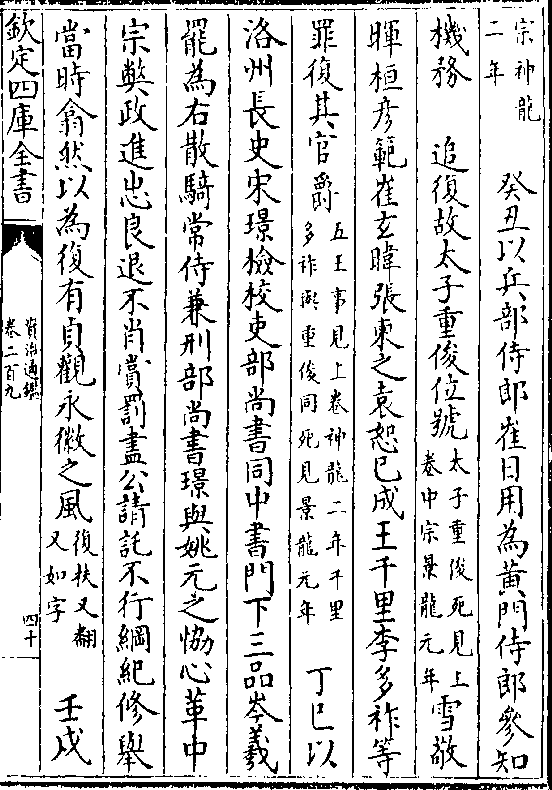 宗神龍
二年
癸丑以兵部侍郎崔日用為黄門侍郎參知
機務　追復故太子重俊位號
太子重俊死見上
卷中宗景龍元年
雪敬
暉桓彦範崔玄暐張柬之袁恕己成王千里李多祚等
罪復其官爵
五王事見上卷神龍二年千里
多祚與重俊同死見景龍元年
丁巳以
洛州長史宋璟檢校吏部尚書同中書門下三品岑羲
罷為右散騎常侍兼刑部尚書璟與姚元之協心革中
宗弊政進忠良退不肖賞罰盡公請託不行綱紀修舉
當時翕然以為復有貞觀永徽之風
復扶又翻
又如字
壬戌
欽定四庫全書
資治通鑑
卷二百九
四十